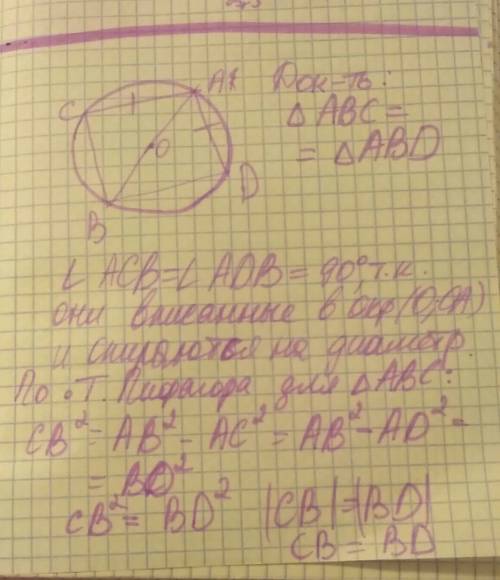 A
C
O
D
B
Док-ть:
△ABC =
= △ABD
∠ACB=∠ADB = 90°, т.к.
они вписанные в окр(O;OA)
и опираются на диаметр
По Т. Пифагора для △ABC:
CB² = AB² - AC² = AB² - AD² =
= BD²
CB² = BD² |CB|=|BD|
CB = BD